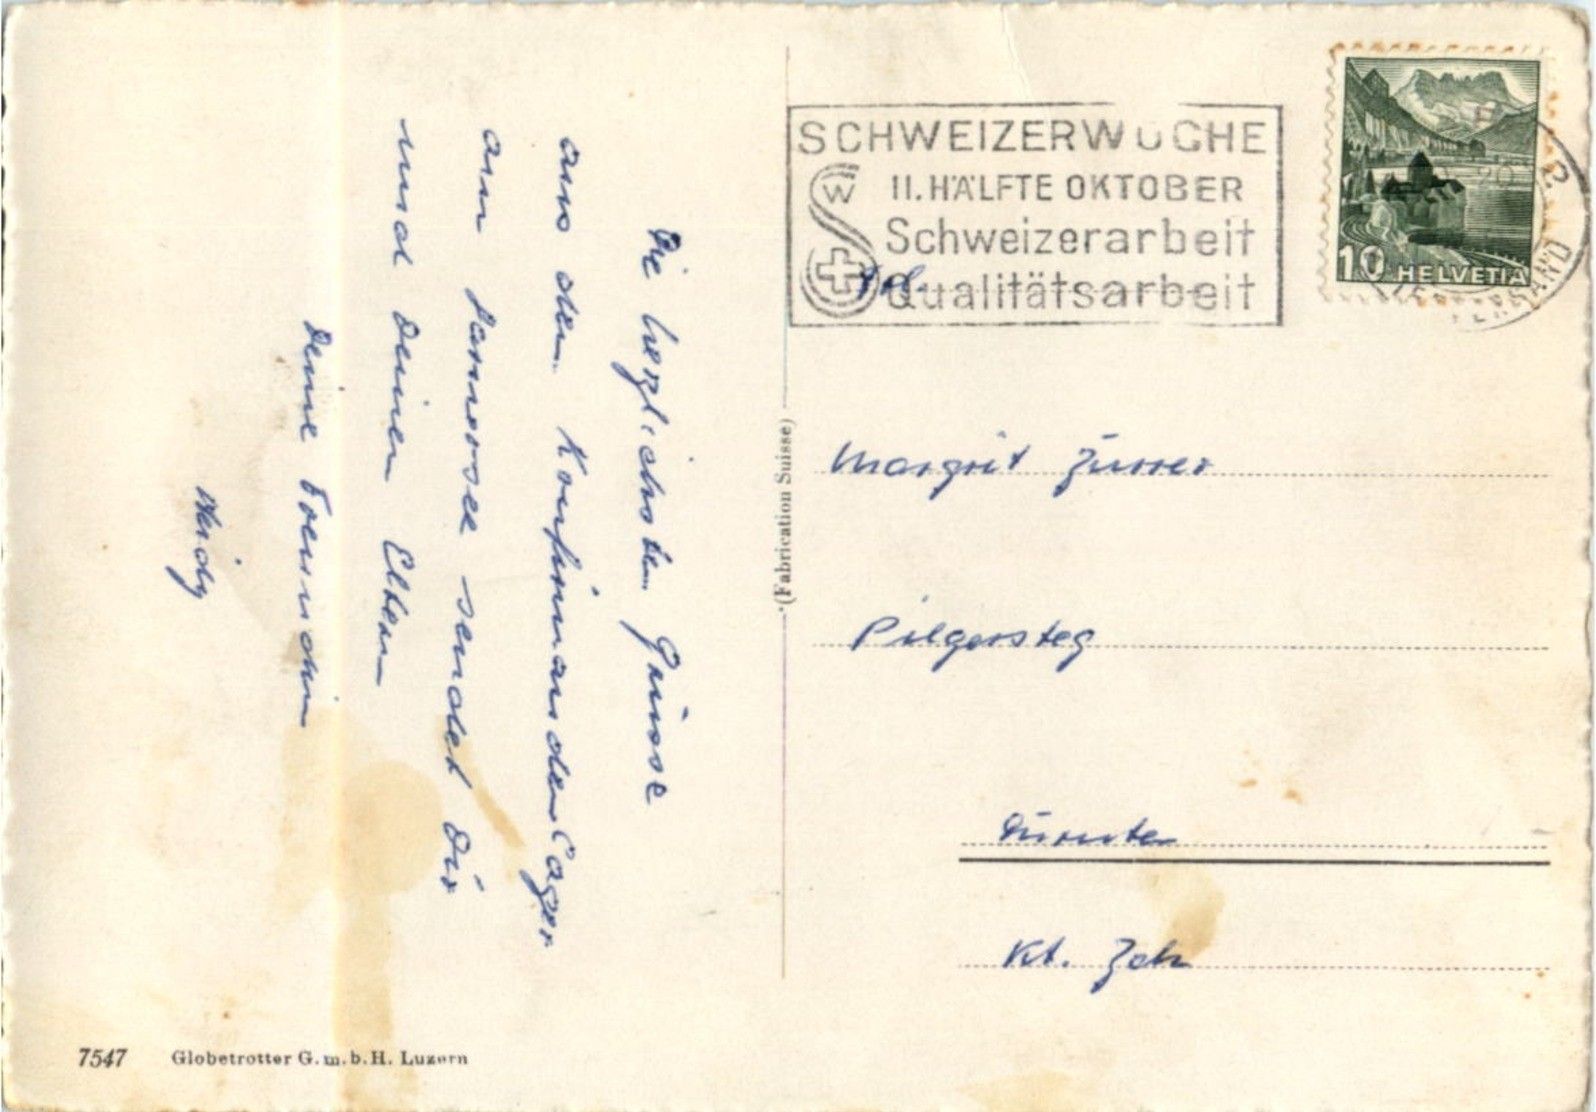 Die herzlichsten Grüsse
aus dem Konfirmandenlager
am sendet Dir
und Deinen Eltern
Deine Freundin
SCHWEIZERWOCHE
II. HÄLFTE OKTOBER
Schweizerarbeit
Qualitätsarbeit
W
10 HELVETIA
Frl.
Margrit Zürrer
Pilgersteg
Dürnten
Kt. Zch
(Fabrication Suisse)
7547 Globetrotter G.m.b.H. Luzern